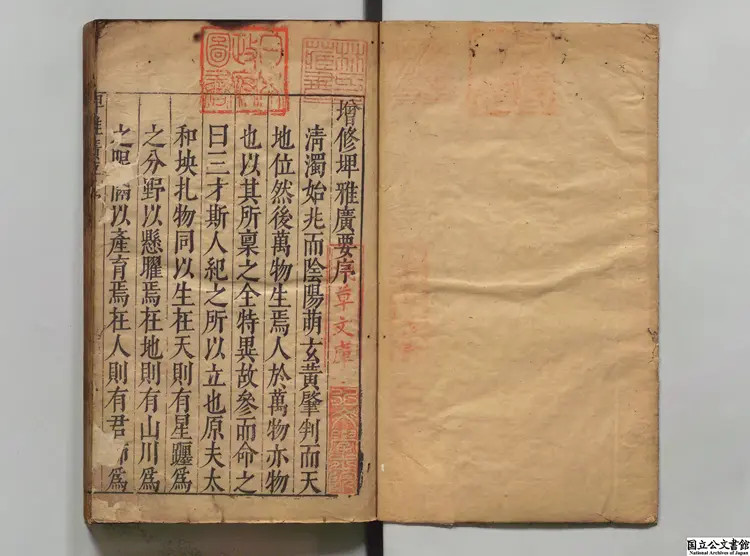 增修埤雅廣要序
清濁始兆而陰陽萌玄黃肇判而天
地位然後萬物生焉人於萬物亦物
也以其所稟之全特異故參而命之
曰三才斯人紀之所以立也原夫太
和坱扎物同以生在天則有星躔爲
之分野以懸曜焉在地則有山川爲
之 以產育焉在人則有君師爲
日本政府圖書
草文庫
国立公文書館
National Archives of Japan